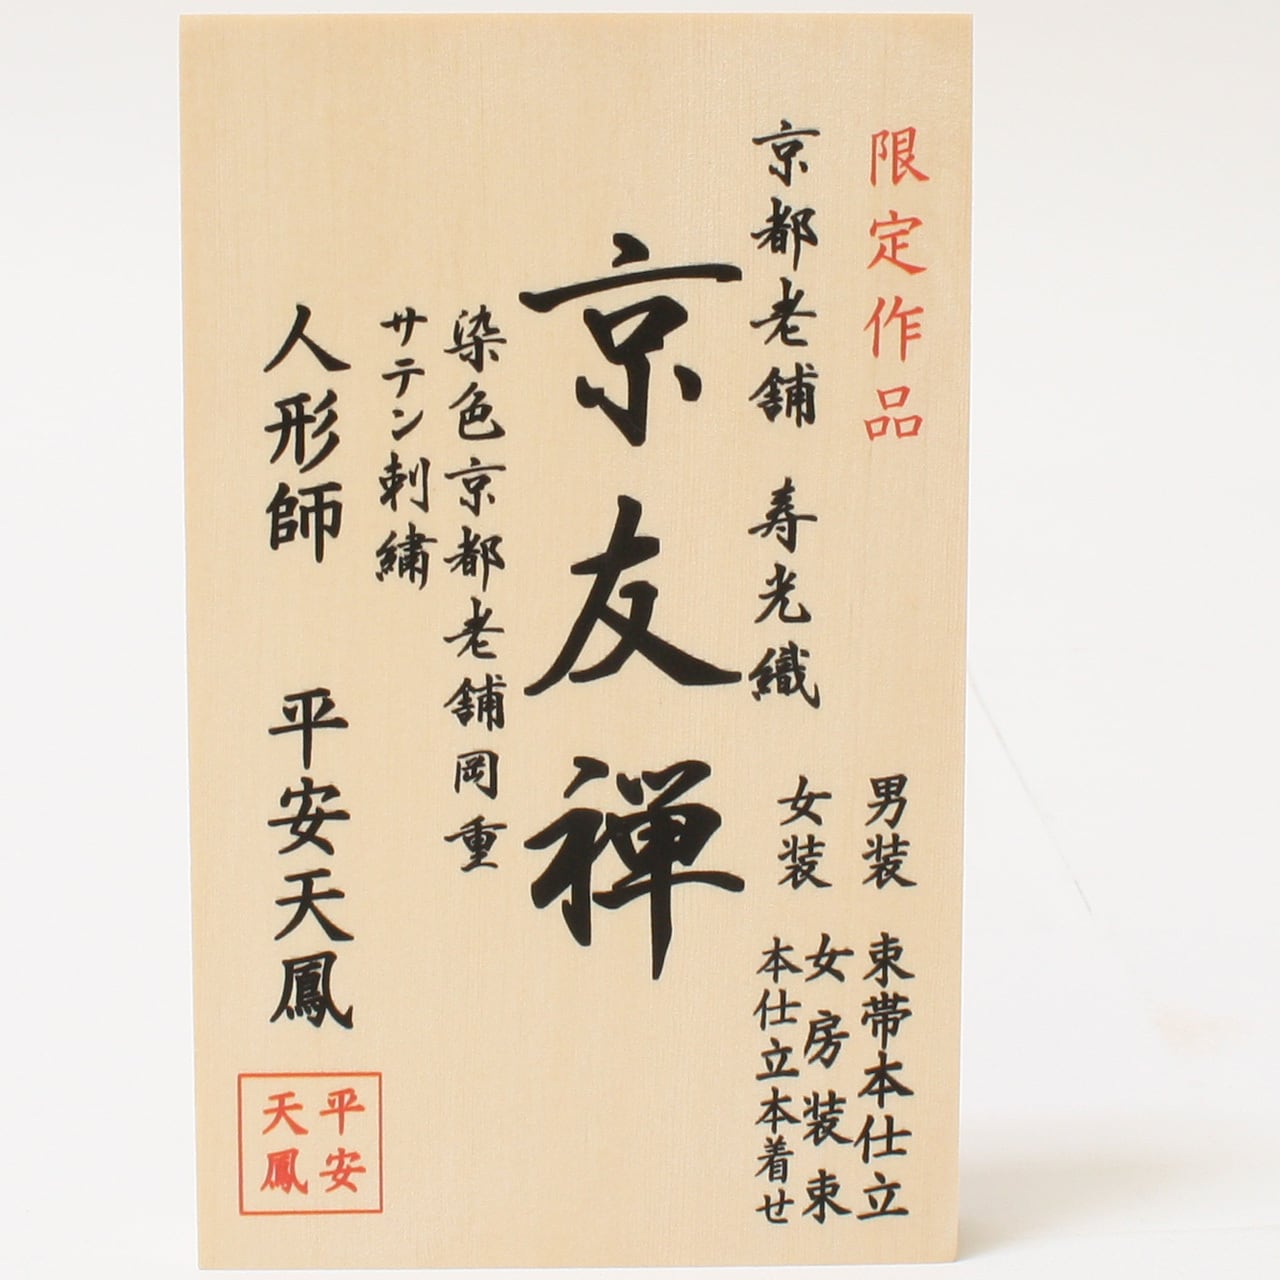 限定作品
京都老舗 寿光織
男装 束帯本仕立
女装 女房装束
本仕立本着せ
京友禅
染色京都老舗岡重
サテン刺繍
人形師 平安天鳳
平安
天鳳